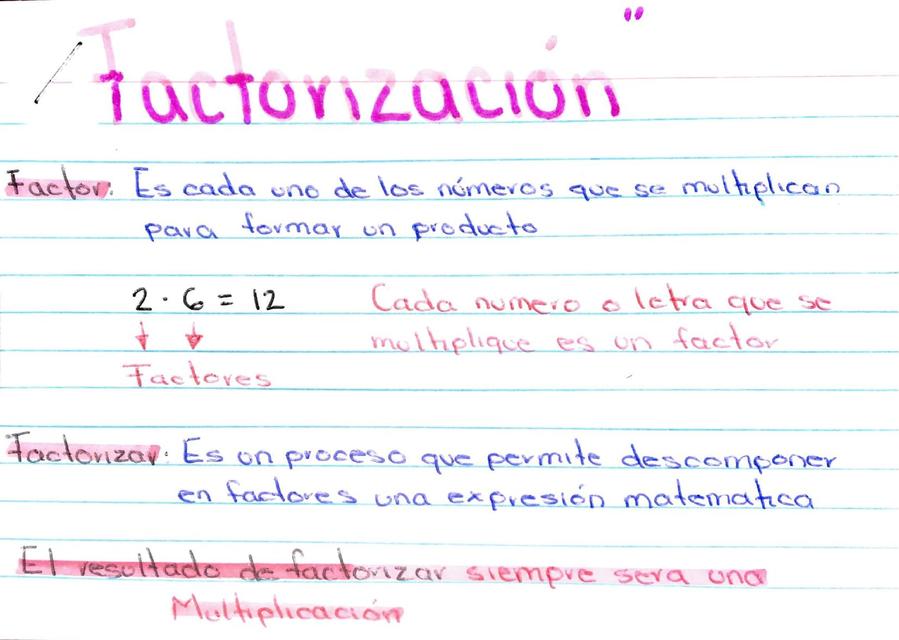 "Factorización"
Factor: Es cada uno de los números que se multiplican
para formar un producto
2 · 6 = 12
Factores
Cada numero o letra que se
multiplique es un factor
Factorizar: Es un proceso que permite descomponer
en factores una expresión matematica
El resultado de factorizar siempre sera una
Multiplicación